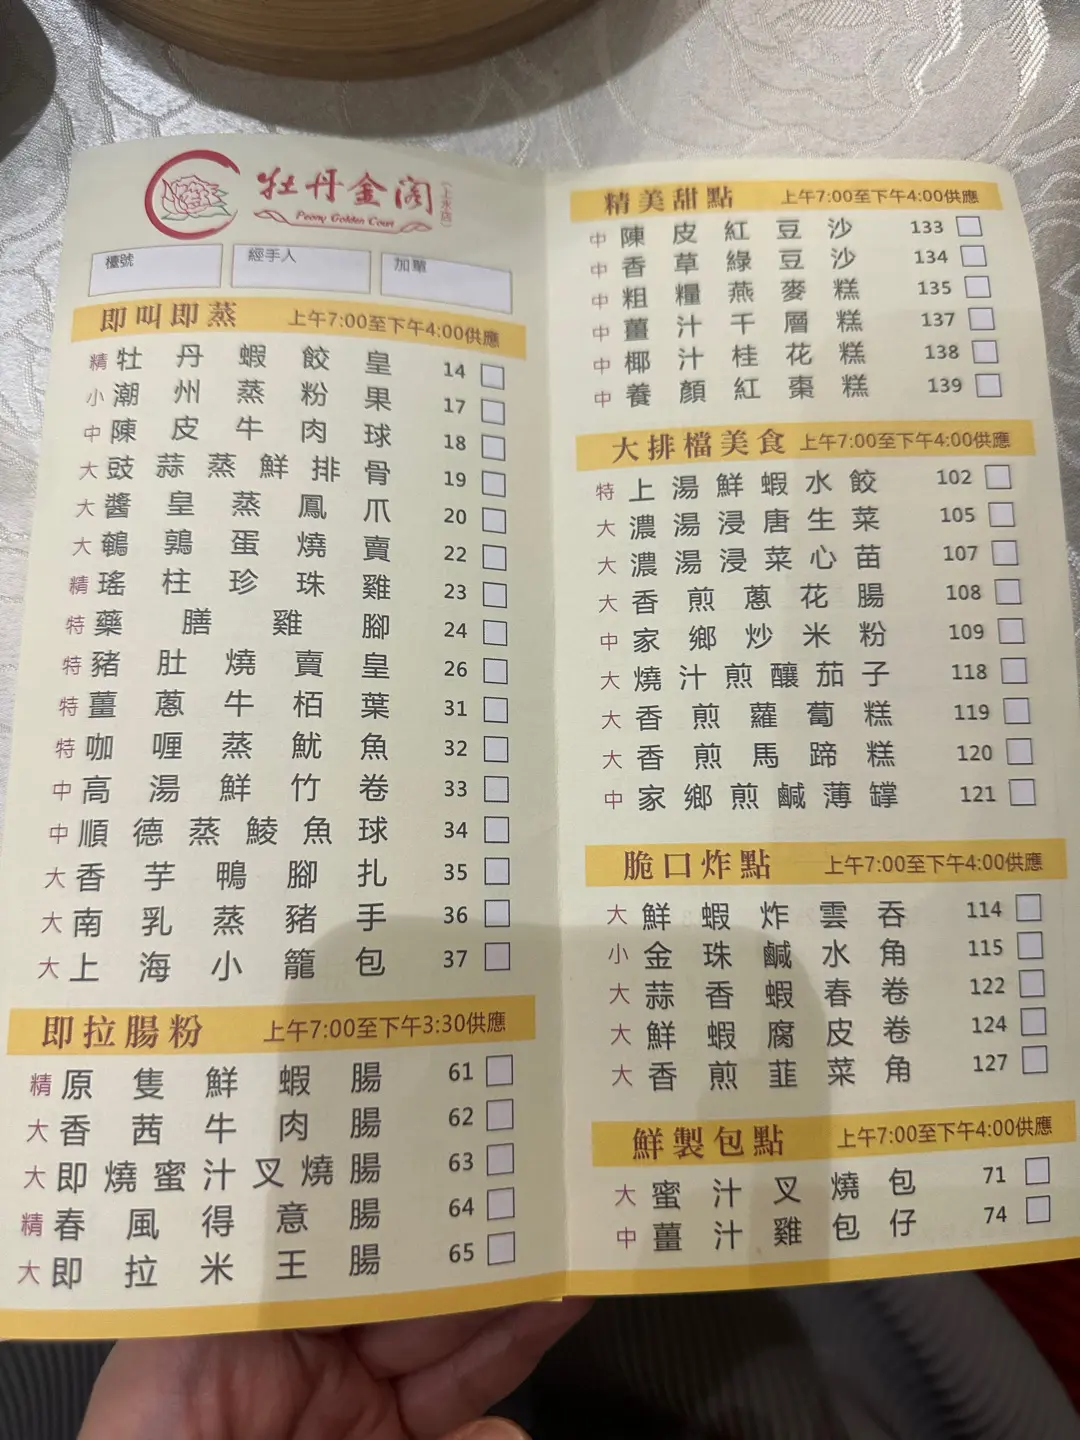 牡丹金閣(上水店)
Peony Golden Court
檯號
經手人
加單
即叫即蒸 上午7:00至下午4:00供應
精 牡丹蝦餃皇 14
小 潮州蒸粉果 17
中 陳皮牛肉球 18
大 豉蒜蒸鮮排骨 19
大 醬皇蒸鳳爪 20
大 鵪鶉蛋燒賣 22
精 瑤柱珍珠雞 23
特 藥膳雞腳 24
特 豬肚燒賣皇 26
特 薑蔥牛栢葉 31
特 咖喱蒸魷魚 32
中 高湯鮮竹卷 33
中 順德蒸鯪魚球 34
大 香芋鴨腳扎 35
大 南乳蒸豬手 36
大 上海小籠包 37
即拉腸粉 上午7:00至下午3:30供應
精 原隻鮮蝦腸 61
大 香茜牛肉腸 62
大 即燒蜜汁叉燒腸 63
精 春風得意腸 64
大 即拉米王腸 65
精美甜點 上午7:00至下午4:00供應
中 陳皮紅豆沙 133
中 香草綠豆沙 134
中 粗糧燕麥糕 135
中 薑汁千層糕 137
中 椰汁桂花糕 138
中 養顏紅棗糕 139
大排檔美食 上午7:00至下午4:00供應
特 上湯鮮蝦水餃 102
大 濃湯浸唐生菜 105
大 濃湯浸菜心苗 107
大 香煎蔥花腸 108
中 家鄉炒米粉 109
大 燒汁煎釀茄子 118
大 香煎蘿蔔糕 119
大 香煎馬蹄糕 120
中 家鄉煎鹹薄罉 121
脆口炸點 上午7:00至下午4:00供應
大 鮮蝦炸雲吞 114
小 金珠鹹水角 115
大 蒜香蝦春卷 122
大 鮮蝦腐皮卷 124
大 香煎韮菜角 127
鮮製包點 上午7:00至下午4:00供應
大 蜜汁叉燒包 71
中 薑汁雞包仔 74